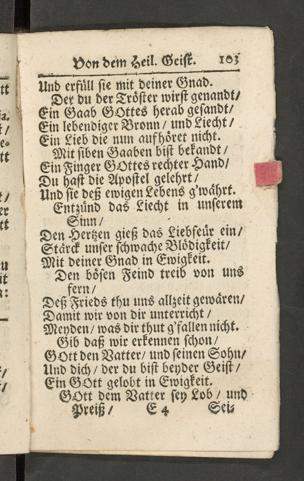 Von dem Heil. Geist. 103
Und erfüll sie mit deiner Gnad.
Der du der Tröster wirst genandt/
Ein Gaab GOttes herab gesandt/
Ein lebendiger Bronn/ und Liecht/
Ein Lieb die nun aufhöret nicht.
Mit siben Gaaben bist bekandt/
Ein Finger GOttes rechter Hand/
Du hast die Apostel gelehrt/
Und sie deß ewigen Lebens g'währt.
Entzünd das Liecht in unserem
Sinn/
Den Hertzen gieß das Liebseür ein/
Stärck unser schwache Blödigkeit/
Mit deiner Gnad in Ewigkeit.
Den bösen Feind treib von uns
fern/
Deß Frieds thu uns allzeit gewären/
Damit wir von dir unterricht/
Meyden/ was dir thut g'fallen nicht.
Gib daß wir erkennen schon/
GOtt den Vatter/ und seinen Sohn/
Und dich/ der du bist beyder Geist/
Ein GOtt gelobt in Ewigkeit.
GOtt dem Vatter sey Lob/ und
Preiß/ E 4 Sei-